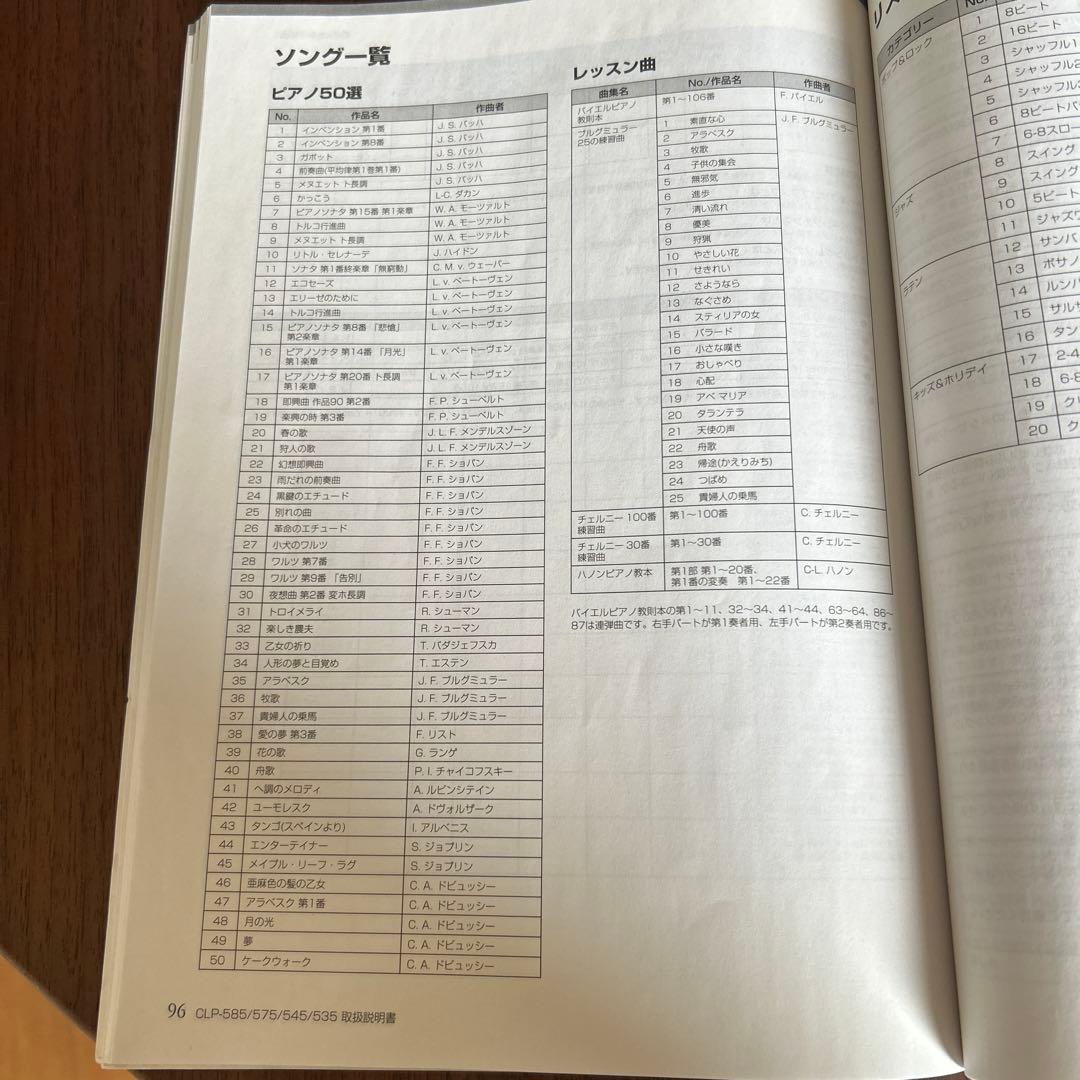 ソング一覧
ピアノ50選
No. 作品名 作曲者
1 インベンション 第1番 J. S. バッハ
2 インベンション 第8番 J. S. バッハ
3 ガボット J. S. バッハ
4 前奏曲(平均律第1巻第1番) J. S. バッハ
5 メヌエット ト長調 J. S. バッハ
6 かっこう L-C. ダカン
7 ピアノソナタ 第15番 第1楽章 W. A. モーツァルト
8 トルコ行進曲 W. A. モーツァルト
9 メヌエット ト長調 W. A. モーツァルト
10 リトル・セレナーデ J. ハイドン
11 ソナタ 第1番終楽章「無窮動」 C. M. v. ウェーバー
12 エコセーズ L. v. ベートーヴェン
13 エリーゼのために L. v. ベートーヴェン
14 トルコ行進曲 L. v. ベートーヴェン
15 ピアノソナタ 第8番 「悲愴」 L. v. ベートーヴェン
第2楽章
16 ピアノソナタ 第14番 「月光」 L. v. ベートーヴェン
第1楽章
17 ピアノソナタ 第20番 ト長調 L. v. ベートーヴェン
第1楽章
18 即興曲 作品90 第2番 F. P. シューベルト
19 楽興の時 第3番 F. P. シューベルト
20 春の歌 J. L. F. メンデルスゾーン
21 狩人の歌 J. L. F. メンデルスゾーン
22 幻想即興曲 F. F. ショパン
23 雨だれの前奏曲 F. F. ショパン
24 黒鍵のエチュード F. F. ショパン
25 別れの曲 F. F. ショパン
26 革命のエチュード F. F. ショパン
27 小犬のワルツ F. F. ショパン
28 ワルツ 第7番 F. F. ショパン
29 ワルツ 第9番 「告別」 F. F. ショパン
30 夜想曲 第2番 変ホ長調 F. F. ショパン
31 トロイメライ R. シューマン
32 楽しき農夫 R. シューマン
33 乙女の祈り T. バダジェフスカ
34 人形の夢と目覚め T. エステン
35 アラベスク J. F. ブルグミュラー
36 牧歌 J. F. ブルグミュラー
37 貴婦人の乗馬 J. F. ブルグミュラー
38 愛の夢 第3番 F. リスト
39 花の歌 G. ランゲ
40 舟歌 P. I. チャイコフスキー
41 ヘ調のメロディ A. ルビンシテイン
42 ユーモレスク A. ドヴォルザーク
43 タンゴ(スペインより) I. アルベニス
44 エンターテイナー S. ジョプリン
45 メイプル・リーフ・ラグ S. ジョプリン
46 亜麻色の髪の乙女 C. A. ドビュッシー
47 アラベスク 第1番 C. A. ドビュッシー
48 月の光 C. A. ドビュッシー
49 夢 C. A. ドビュッシー
50 ケークウォーク C. A. ドビュッシー
レッスン曲
曲集名 No./作品名 作曲者
バイエルピアノ 第1〜106番 F. バイエル
教則本
ブルグミュラー 1 素直な心 J. F. ブルグミュラー
25の練習曲 2 アラベスク
3 牧歌
4 子供の集会
5 無邪気
6 進歩
7 清い流れ
8 優美
9 狩猟
10 やさしい花
11 せきれい
12 さようなら
13 なぐさめ
14 スティリアの女
15 バラード
16 小さな嘆き
17 おしゃべり
18 心配
19 アベ マリア
20 タランテラ
21 天使の声
22 舟歌
23 帰途(かえりみち)
24 つばめ
25 貴婦人の乗馬
チェルニー 100番 第1〜100番 C. チェルニー
練習曲
チェルニー 30番 第1〜30番 C. チェルニー
練習曲
ハノンピアノ教本 第1部 第1〜20番、 C-L. ハノン
第1番の変奏 第1〜22番
バイエルピアノ教則本の第1〜11、32〜34、41〜44、63〜64、86〜
87は連弾曲です。右手パートが第1奏者用、左手パートが第2奏者用です。
96 CLP-585/575/545/535 取扱説明書
カテゴリー
1 8ビート
2 16ビート
3 シャッフル1
4 シャッフル2
5 シャッフル
6 8ビートバ
7 6-8スロー
8 スイング
ジャズ 9 スイング
10 5ビート
11 ジャズワ
12 サンバ
ラテン 13 ボサノ
14 ルンバ
15 サルサ
16 タン
キッズ&ホリデイ 17 2-4
18 6-8
19 ク
20 ク